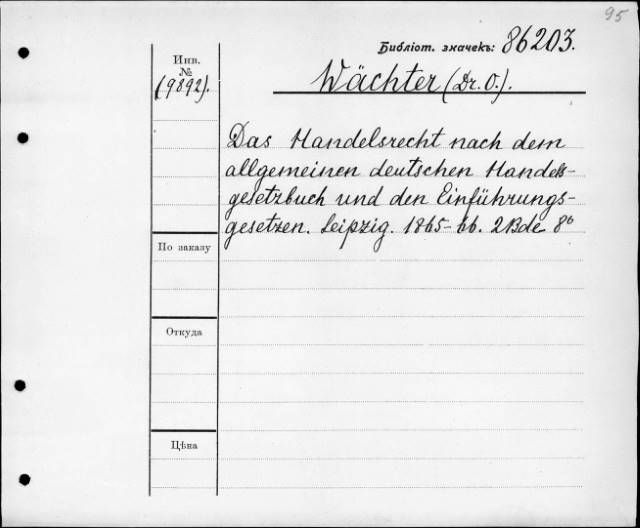 95
Библіот. значекъ: 86203.
Инв.
№
(9892).
Wächter (Dr. O.).
Das Handelsrecht nach dem
allgemeinen deutschen Handels-
gesetzbuch und den Einführungs-
gesetzen. Leipzig. 1865-66. 2 Bde 8º
По заказу
Откуда
Цѣна